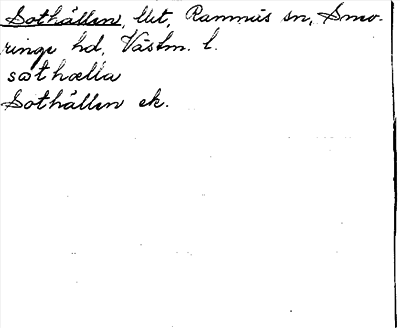 Sothällen, llet, Ramnäs sn, Snev-
ringe hd, Västm. l.
sothœlla
Sothällen ek.